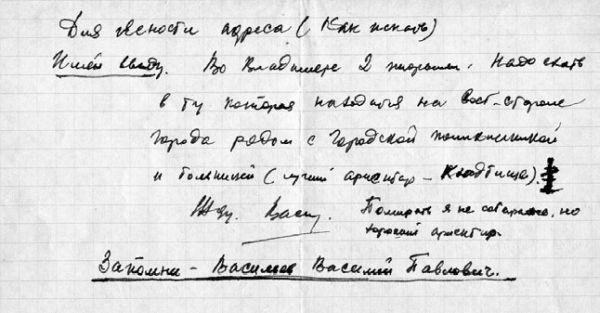 Для ясности адреса (Как искать)
Имей ввиду. Во Владимире 2 тюрьмы. Надо ехать
в ту которая находится на вост. стороне
города рядом с городской поликлиникой
и больницей (лучший ориентир – Кладбище).
Жду. Васи
Помирать я не собираюсь, но
хороший ориентир.
Запомни – Васильев Василий Павлович.